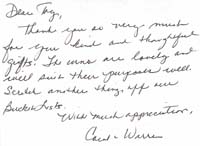 Dear Troy,
Thank you so very much
for your kind and thoughtful
gifts. The urns are lovely and
will suit their purposes well.
Scratch another thing off our
Bucket Lists.
With much appreciation,
Carol & Warren